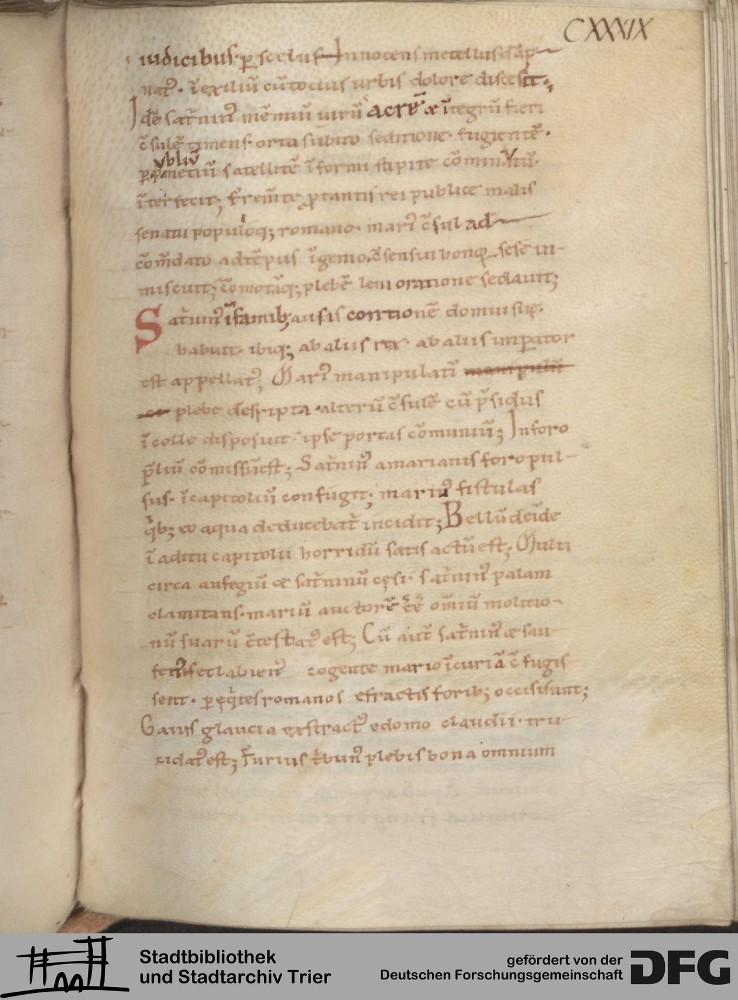 CXXXIX
iudicibus· p̄ scelus Innocens metellus dāp
nat᾽· īexiliū cū tocius urbis dolore discessit·
Idē sat̄nin᾽ mēmiū uirū acrē & ītegrū fieri
c̄sulē timens· orta subito seditione· fugientē·
p̄ p. metiū satellitē īformi stipite cōminutū·
ubliū
īterfecit; frem̄te p̄ tantis rei publice malis
senatu populoq; romano· mari᾽ c̄sul ad
cōm̄dato adtēpus īgenio, c̄sensui bonoꝝ sese in-
miscuit; cōmotāq; plebē leni oratione sedauit;
Sat̄nin᾽ īfamib; ausis contionē domui suę·
habuit· ibiq; ab aliis rex· ab aliis imperator
est appellat᾽; Mari᾽ manipulatī manipulū
plebe descripta alterū c̄sulē cū p̄sidiis
ī colle disposuit· ipse portas cōmuniuit; In foro
p̄liū cōmissū est; Sat̄nin᾽ a marianis foro pul-
sus· ī capitoliū confugit; mari᾽ fistulas
q̄b; eo aqua deducebat̄ incidit; Bellū deīde
ī aditu capitolii horridū satis actū est; Multi
circa aufegiū & sat̄ninū cęsi· sat̄nin᾽ palam
clamitans· mariū auctorē ēē omiū molitio-
nū suarū c̄testat᾽ est; Cū aut̄ sat̄nin᾽ & sau
fei᾽ & labien᾽ cogente mario ī curiā c̄fugis
sent· p̄ eq̄tes romanos effractis forib; occisi sunt;
Gaius glaucia extract᾽ e domo claudii· tru-
cidat᾽ est; Furius t̄bun᾽ plebis bona omnium
Stadtbibliothek
und Stadtarchiv Trier
gefördert von der
Deutschen Forschungsgemeinschaft
DFG